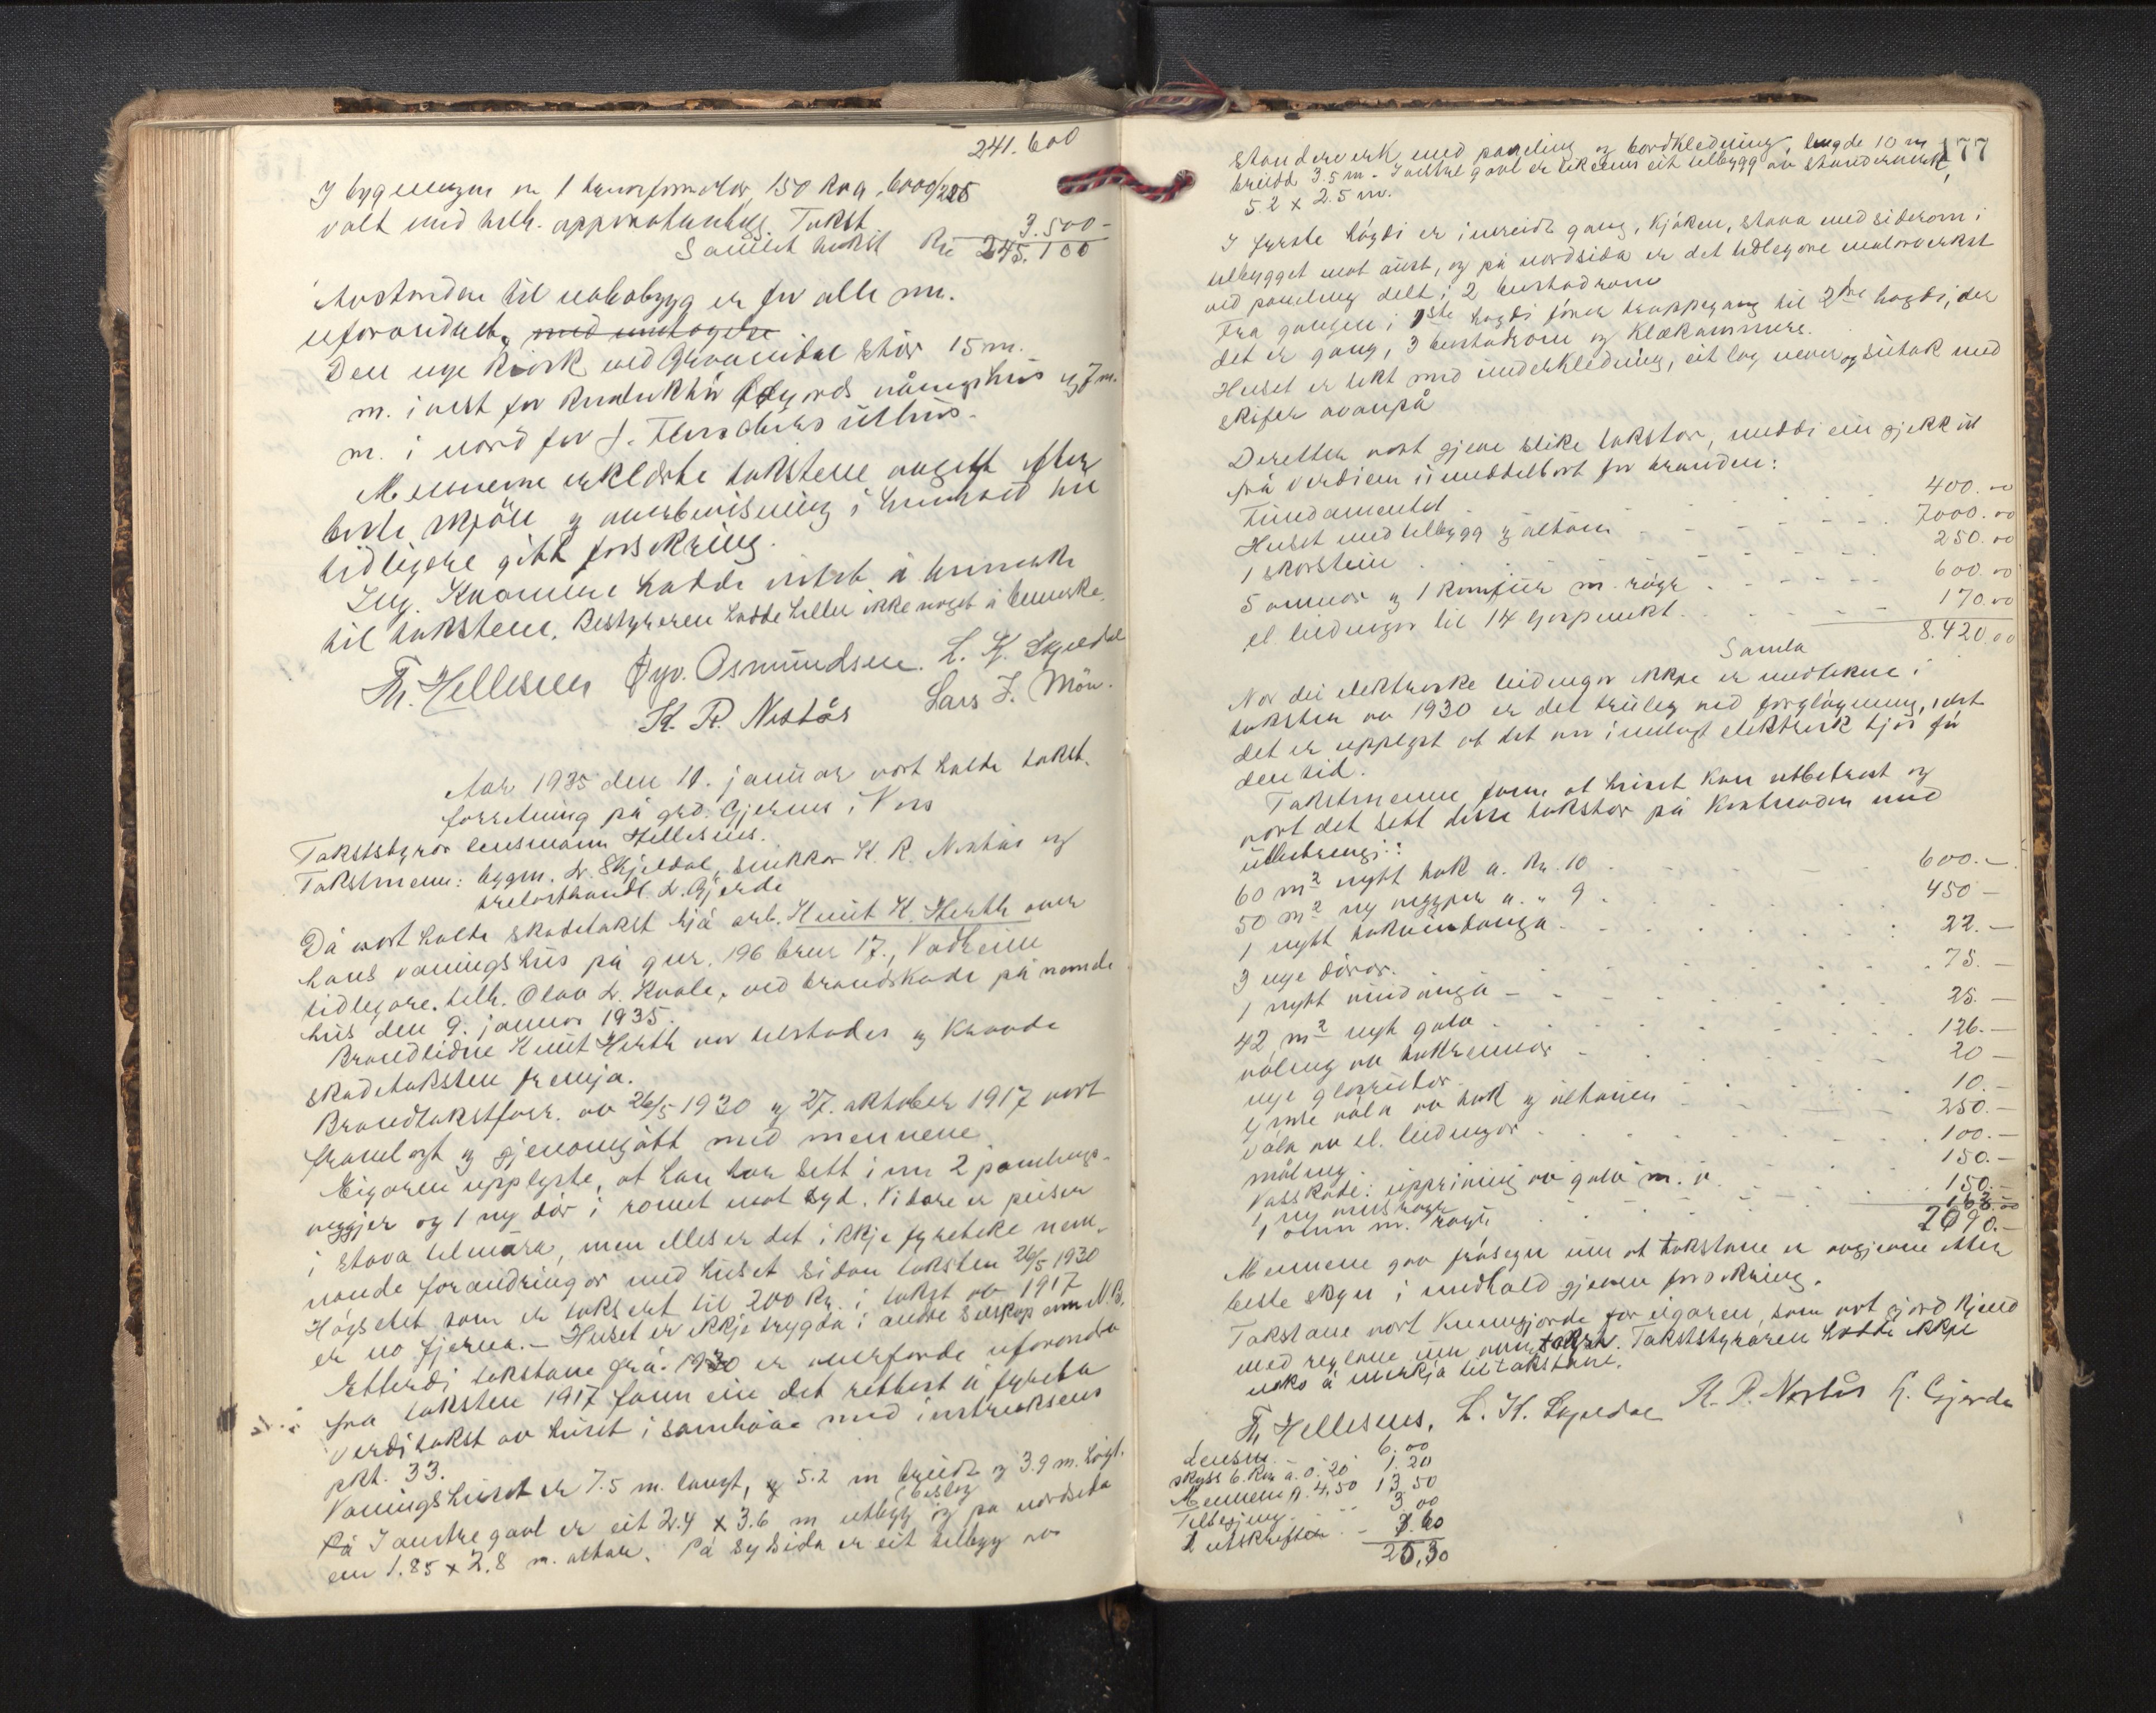 241.600
I bygningen er 1 transformator, 150 kva. 6000/225
volt med tilh. apparatanlegg. Takst 3.500-
Samlet takst Kr 245.100
Avstanden til nabobygg er for alle nr.
uforandret, med undtagelse
Den nye kiosk ved står 15 m.
m. i vest for våningshus og 7 m.
m. i nord for J. uthus.
Mennerne erklærte takstene avgitt efter
beste skjön og overbevisning i henhold til
tidligere gitt forsikring.
Ing. hadde intet å bemerke
til taksten. Bestyreren hadde heller ikke noget å bemerke.
Th. Hellesnes Osmundsen. L. K. Skjeldal
K. R. Nestås Lars J. Mön.
Aar 1935 den 11. januar vort halde takst-
forretning på grd. Gjernes i Voss
Takststyrar lensmann Hellesnes.
Takstmenn: bygm. L. Skjeldal, snikkar K. R. Nestås og
trelasthandl. L. Gjerde
Då vart halde skadetakst hjå arb. Knut K. Herth over
hans vaningshus på gnr. 196 brnr 17., Vadheim
tidlegare. tilh. Olav L. Kvale, ved brandskade på nemde
hus den 9. januar 1935.
Brandlidne Knut Herth var tilstades og kravde
skadetaksten fremja.
Brandtakstforr. av 26/5 1930 og 27. oktober 1917 vort
framlagt og gjenomgått med mennene.
Eigaren upplyste, at han har sett inn 2 panelings-
veggjer og 1 ny dör i romet mot syd. Vidare er peisen
i stova tilmura, men elles er det ikkje fyreteke nem-
nande forandringar med huset sidan taksten 26/5 1930
Högsetet som er taksert til 200 kr. i takst av 1917
er no fjerna. – Huset er ikkje trygda i andre selskap enn N.B.
Etterdi takstane frå 1930 er overförde uforandra
fra taksten 1917 fann ein det rettast å fyreta
verditakst av huset i samhöve med instruksens
pkt. 33.
Vaningshuset er 7.5 m. langt, og 5.2 m breidt og 3.9 m. högt.
På I austre gavl er eit 2.4 x 3.6 m utbygg (bislag) og på nordsida
ein 1.85 x 2.8 m. altan. På sydsida er eit tilbygg av
177
standerverk med paneling og bordkledning, lengde 10 m
breidd 3.5 m. – I vestre gavl er likeeins eit tilbygg av standerverk,
5.2 x 2.5 m.
I fyrste högdi er innreidt gang, kjöken, stova med siderom i
tilbygget mot aust, og på nordsida er det tidlegare malarverkst
ved paneling delt i 2 bustadrom
Fra gangen i 1ste högdi förer trappegang til 2dre högdi, der
det er gang, 3 bustadrom og klækammers.
Huset er tekt med underkledning, eit lag never og sutak med
skifer ovanpå
Deretter vort gjeve slike takstar, meddi ein gjekk ut
frå verdien umeddelbart for branden:
Fundamentet 400.00
Huset med tilbygg og altan 7000.00
1 skorstein 250.00
5 omnar og 1 komfur m. rögr 600.00
el leidningar til 14 ljospunkt. 170.00
Samla 8.420.00
Nar dei elektriske leidningar ikkje er medtekne i
taksten av 1930 er det truleg ved forglöyming, idet
det er upplyst at det var innlagt elektrisk ljos för
den tid.
Takstmennene fann at huset kan utbetrast og
vort det sett desse takstar på kostnaden med
utbetringi:
60 m² nytt tak a. kr. 10 600.–
50 m² ny veggpn a. „ 9 450–
1 nytt takvindauga 22.–
3 nye dörar. 75.–
1 nytt vindauga 25.–
42 m² nytt golv 126.–
våling av takrennor 20–
nye glasrutor 10.–
Ymse våla av tak og altanen 250.–
Våla av el. leidningar 100.–
måling. 150.–
Vasskade: upprivning av golv m. v. 150.–
1 ny
1 omn m. rögr
2090.–
Mennene gav fråsegn um at takstane er avgjevne etter
beste skyn i medhald gjeven forsikring.
Takstane vort kunngjorde for eigaren, som vart gjord kjend
med reglane um overtakst. Takststyraren hadde ikkje
noko å merkja til takstane.
Th. Hellesnes, L. K. Skjeldal K. R. Nestås L. Gjerde
Lensm. 6.00
skyss 6. km a. 0.20 1.20
Mennene a. 4,50 13.50
Tilseging. 3.00
2 utskrifter